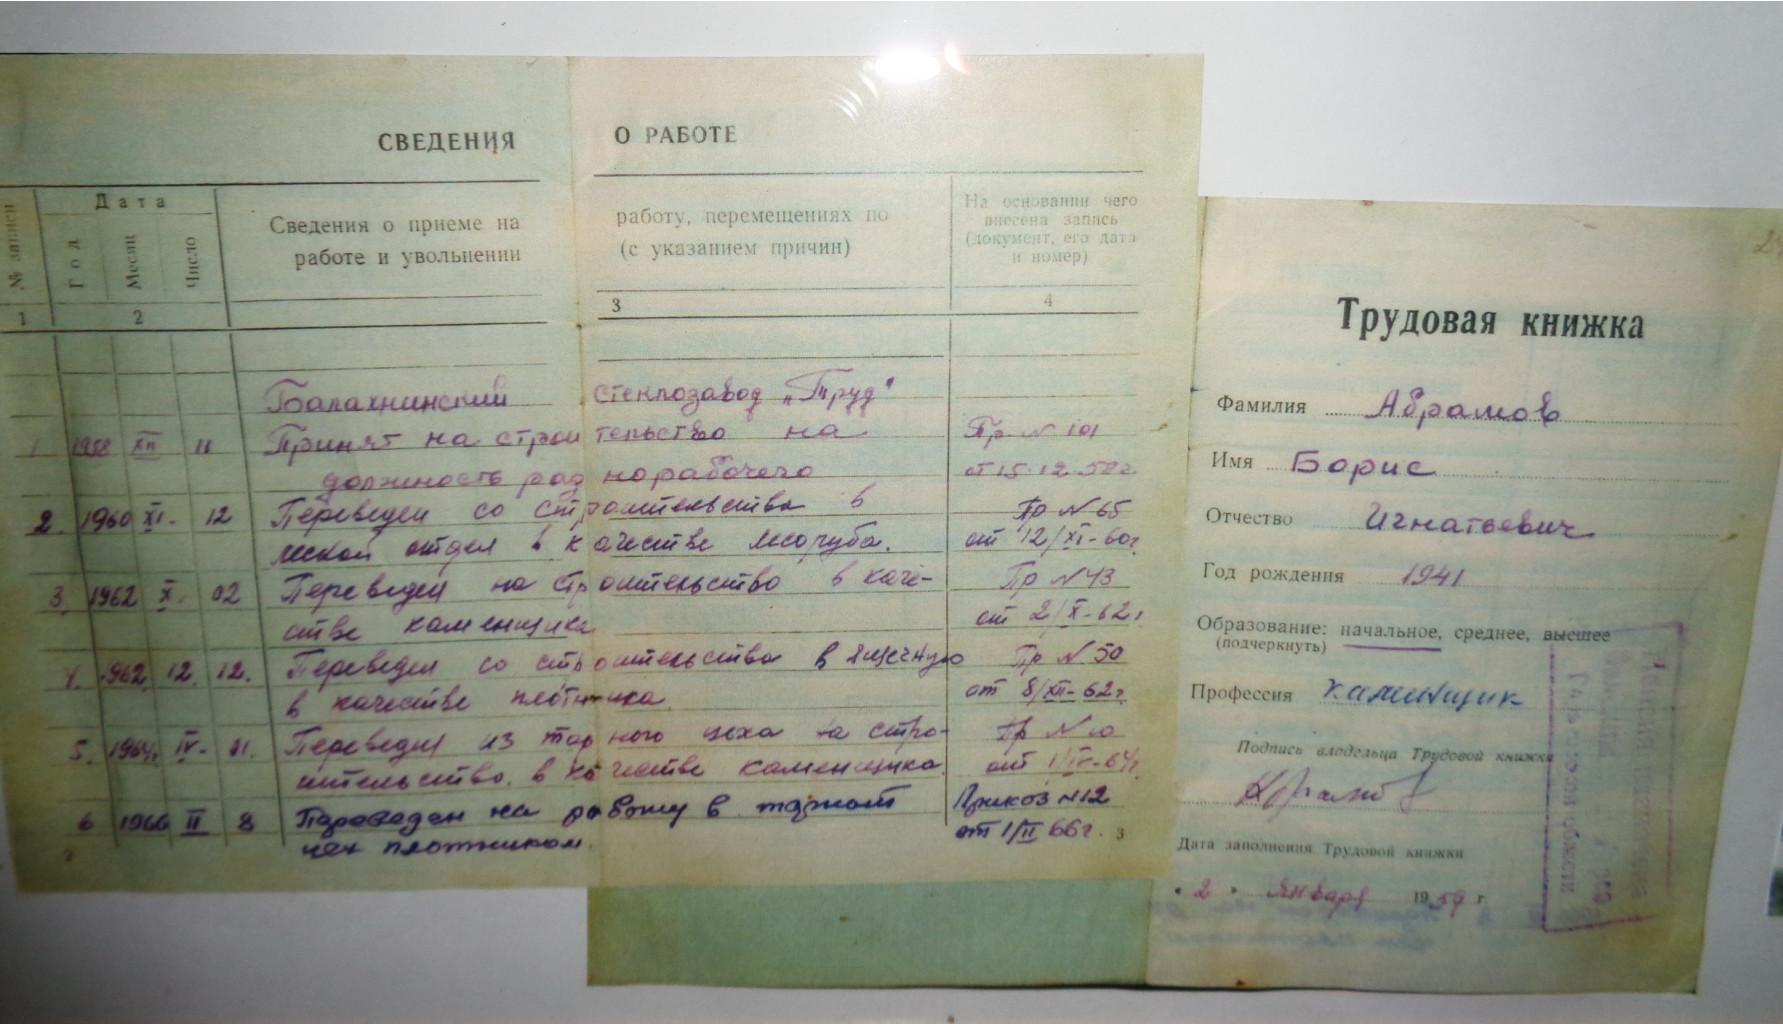 СВЕДЕНИЯ О РАБОТЕ
№ записи
Дата
Год
Месяц
Число
Сведения о приеме на работу, перемещениях по
работе и увольнении (с указанием причин)
На основании чего
внесена запись
(документ, его дата
и номер)
1 2 3 4
Балахнинский стеклозавод „Труд"
1 1958 XII 11 Принят на строительство на Пр N 101
должность разнорабочего от 15.12.58г.
2. 1960 XI- 12 Переведен со строительства в Пр N 65
лесной отдел в качестве лесоруба. от 12/XI-60г.
3. 1962 X. 02 Переведен на строительство в каче- Пр N 43
стве каменщика от 2/X-62г.
4. 1962. 12. 12. Переведен со строительства в ящечную Пр N 50
в качестве плотника. от 8/XII-62г.
5. 1964г. IV- 01. Переведен из тарного цеха на стро- Пр N 10
ительство. в качестве каменщика. от 1/IV-64г.
6 1966 II 8 Переведен на работу в тарной Приказ N12
цех плотником. от 1/II 66г.
2 3
Трудовая книжка
Фамилия Абрамов
Имя Борис
Отчество Игнатьевич
Год рождения 1941
Образование: начальное, среднее, высшее
(подчеркнуть)
Профессия каменщик
Подпись владельца Трудовой книжки
Дата заполнения Трудовой книжки
„2" января 1959 г.